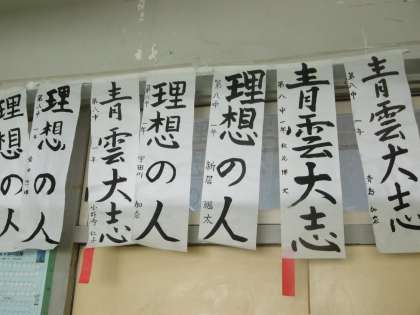 青雲大志
第八中
青雲大志
第八中 一年
理想の人
第八中 一年 新居 颯太
理想の人
第八中 一年 宇田川
青雲大志
第八中 一年
理想の人
第八中 一年
理想の人